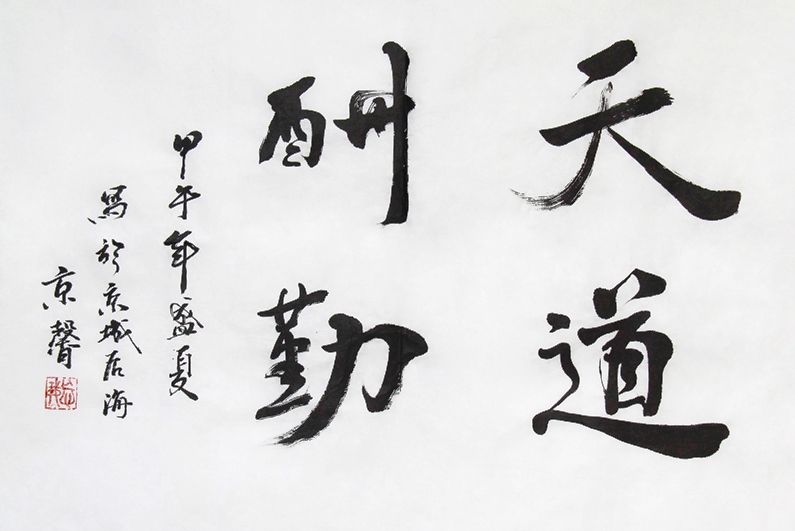 天道
酬勤
甲午年盛夏
写於京城后海
京馨